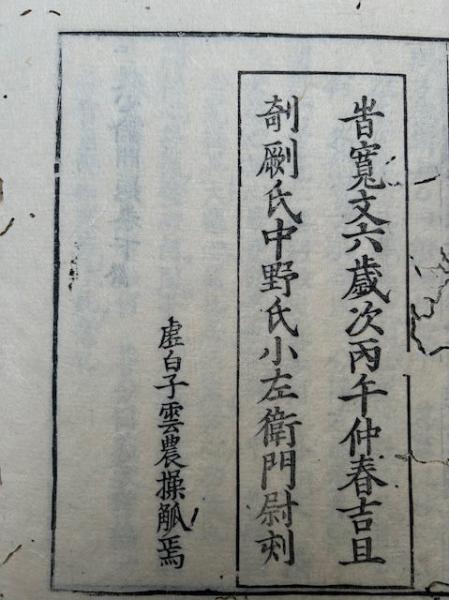 旹寛文六歳次丙午仲春吉旦
剞劂氏中野氏小左衛門尉刻
虚白子雲農操觚焉